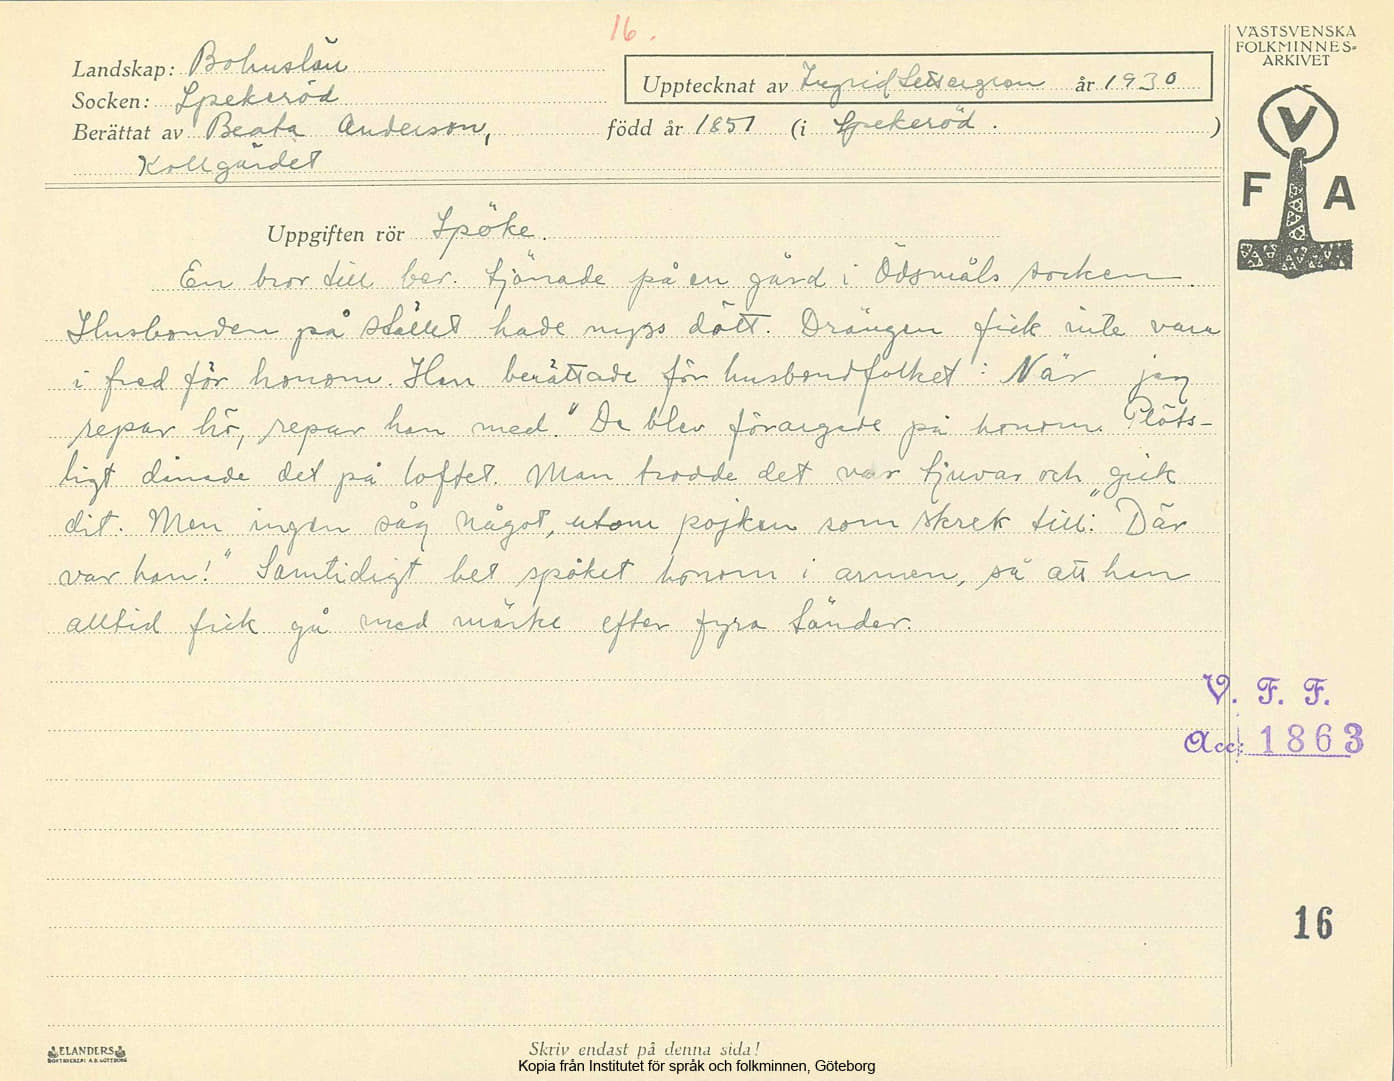 16.
VÄSTSVENSKA
FOLKMINNES-
ARKIVET
Landskap: Bohuslän
Upptecknat av Ingrid Settergren år 1930
Socken: Spekeröd
Berättat av Beata Anderson, född år 1851 (i Spekeröd.)
Kollgärdet
V
F A
Uppgiften rör Spöke.
En bror till ber. tjänade på en gård i Ödsmåls socken.
Husbonden på stället hade nyss dött. Drängen fick inte vara
i fred för honom. Han berättade för husbondfolket: När jag
repar hö, repar han med." De blev förargade på honom. Plöts-
ligt dånade det på loftet. Man trodde det var tjuvar och gick
dit. Men ingen såg något, utom pojken som skrek till: "Där
var han!" Samtidigt bet spöket honom i armen, så att han
alltid fick gå med märke efter fyra tänder.
V. F. F.
Acc: 1863
16
ELANDERS
BOKTRYCKERI A.B. GÖTEBORG
Skriv endast på denna sida!
Kopia från Institutet för språk och folkminnen, Göteborg